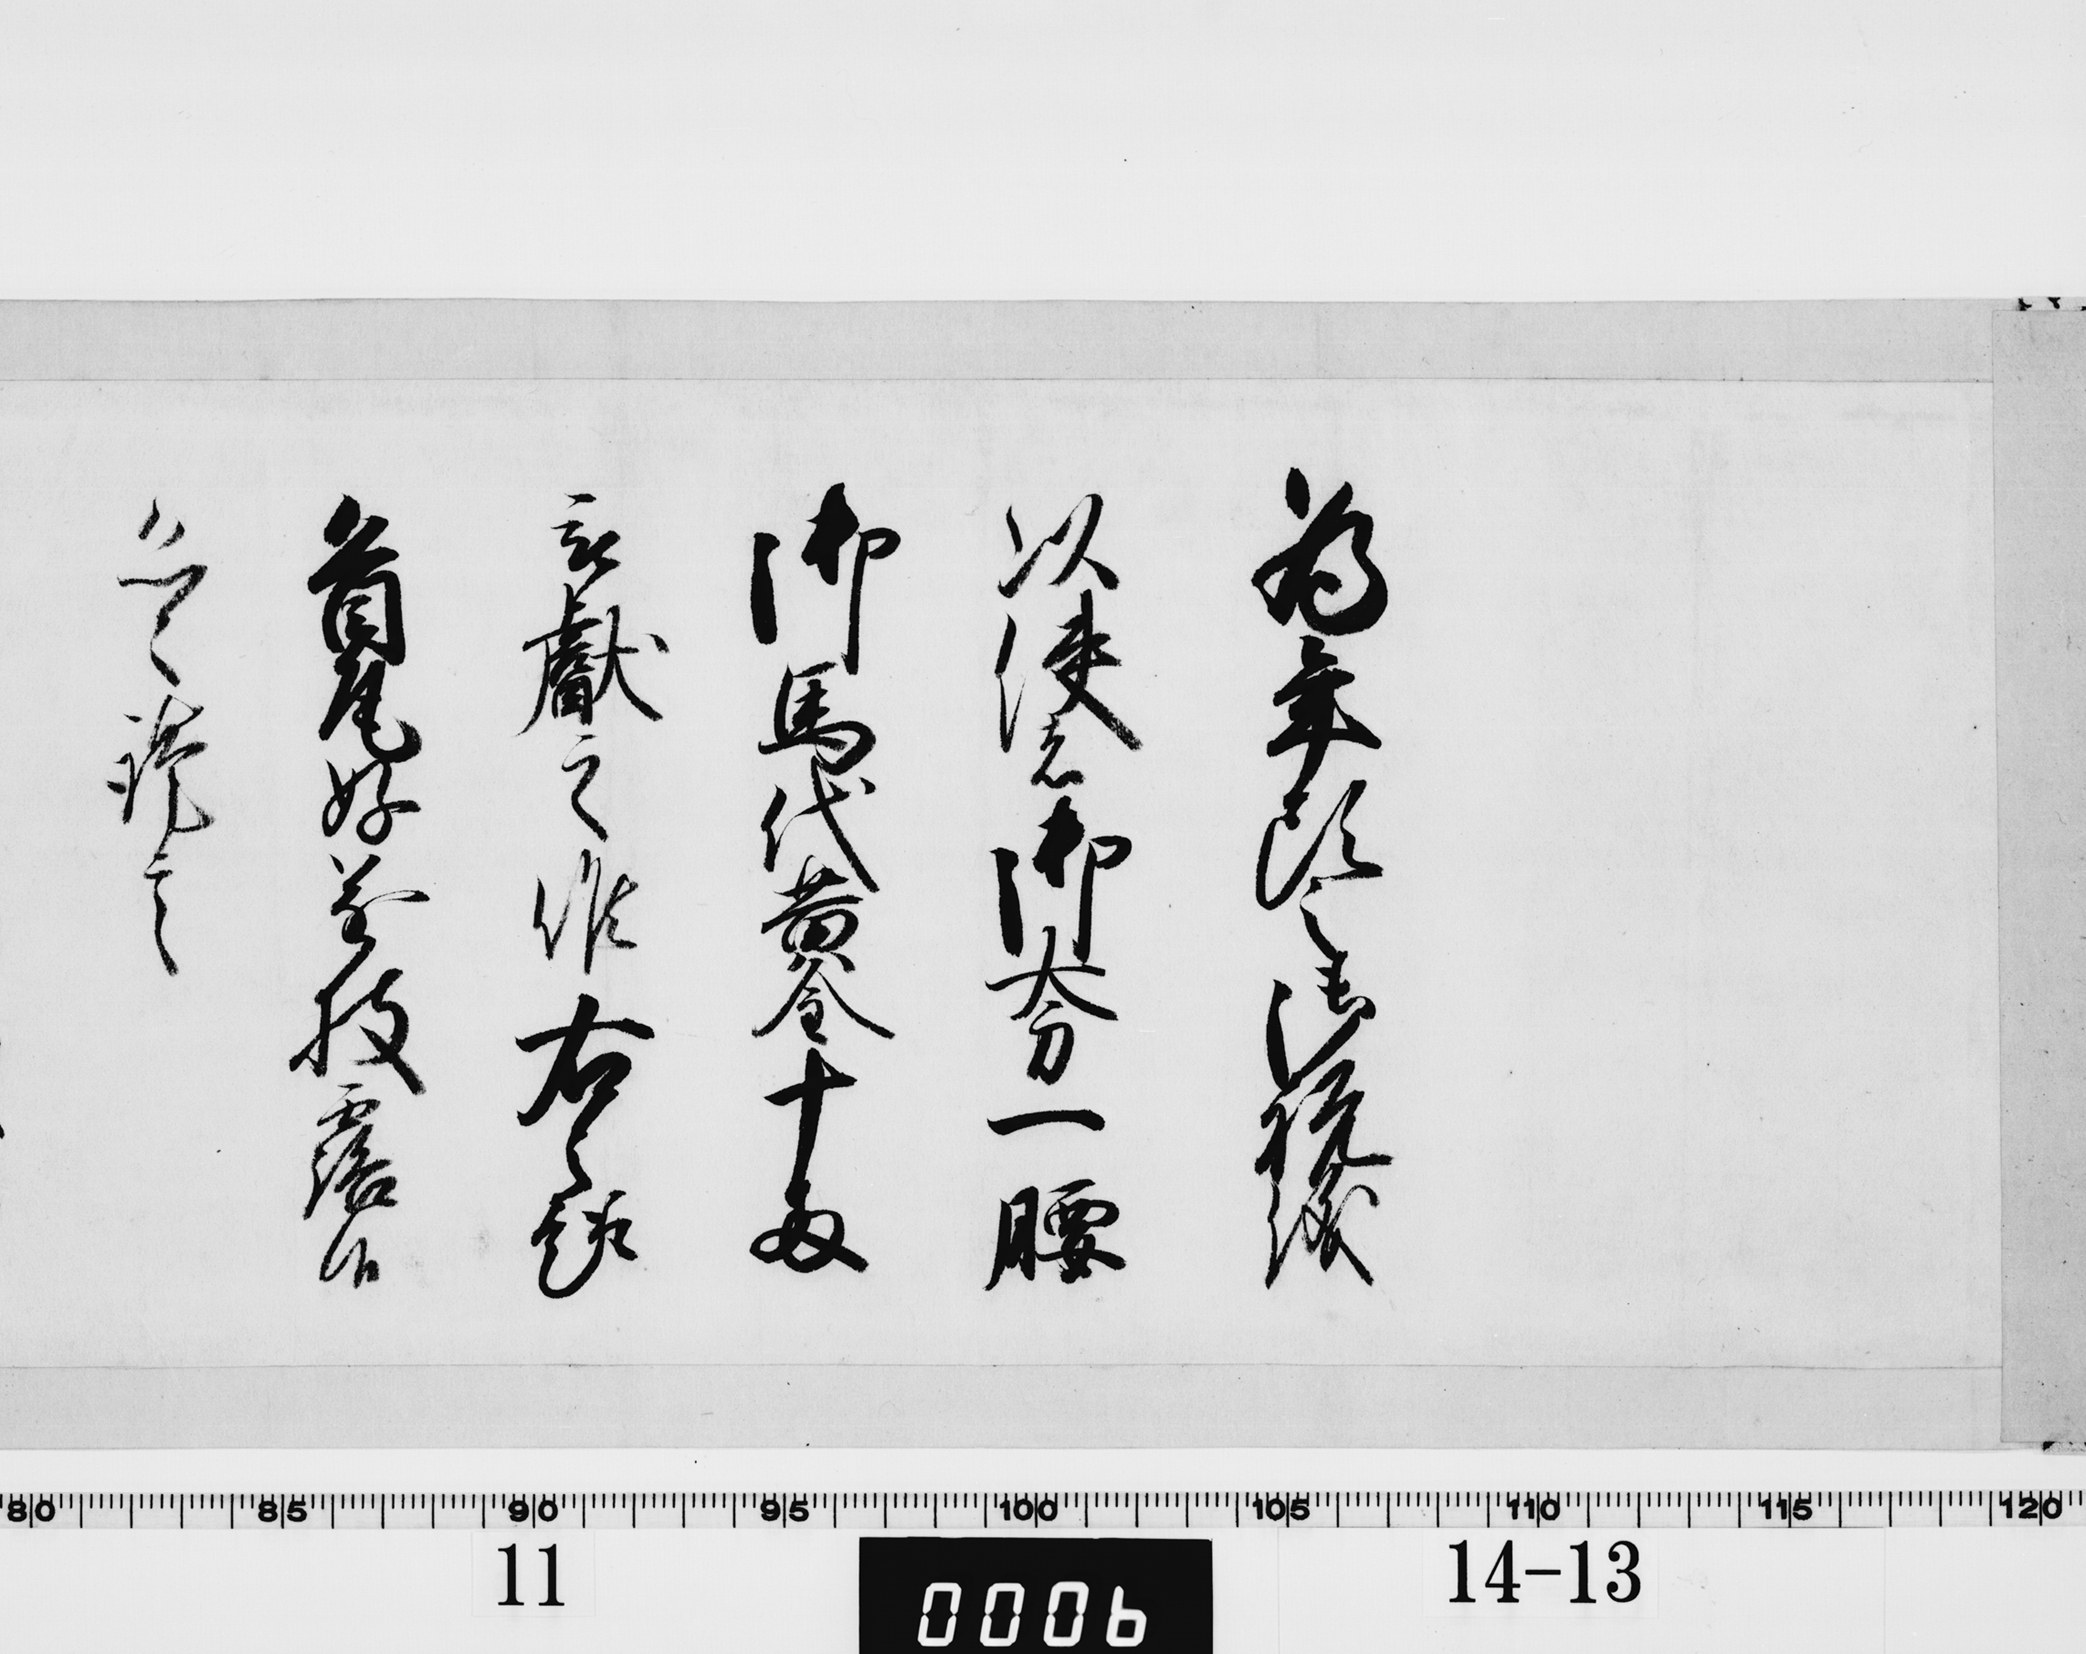 為年頭之御祝儀
以使者御太刀一腰
御馬代黄金十両
被獻之候右之趣
首尾好遂披露候
恐々謹言
80 85 90 95 100 105 110 115 120
11 0006 14-13